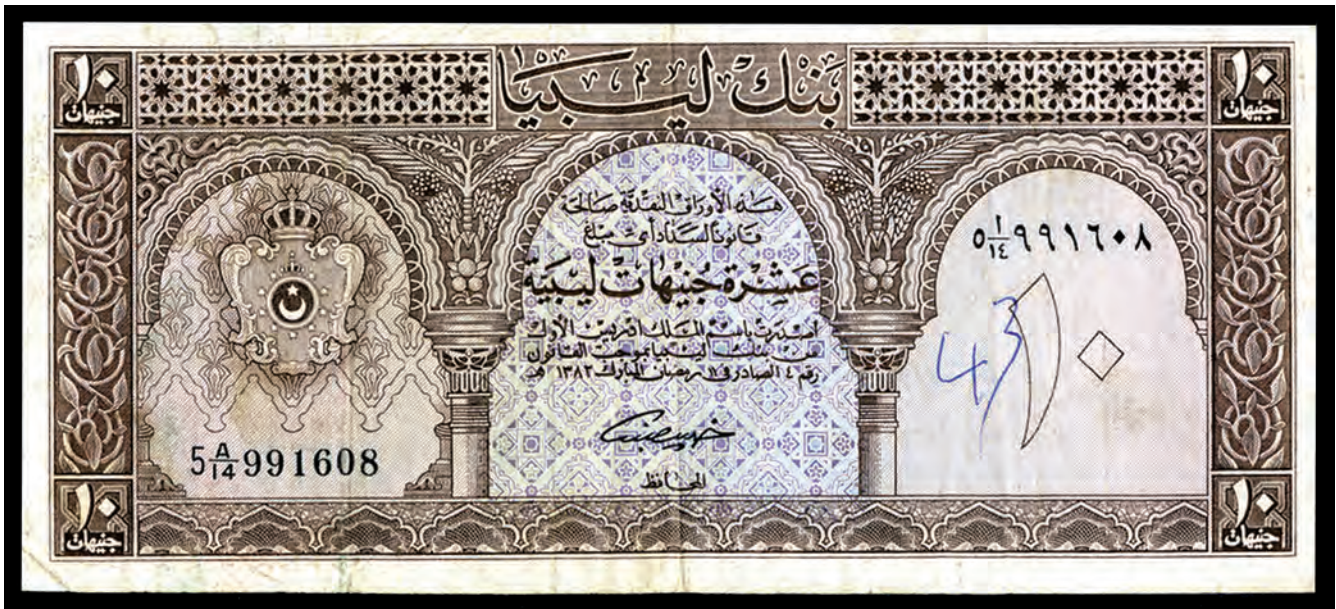 ١٠
جنيهات
بنك ليبيا
١٠
جنيهات
هذه الأوراق النقدية صالحة
قانوناً لسداد أي مبلغ
عشرة جنيهات ليبية
أصدرت باسم الملك ادريس الأول
عن بنك ليبيا بموجب القانون
رقم ٤ الصادر في ١١ رمضان المبارك ١٣٨٢ هـ
المحافظ
٥ ١/١٤ ٩٩١٦٠٨
١٠
43
5 A/14 991608
١٠
جنيهات
١٠
جنيهات